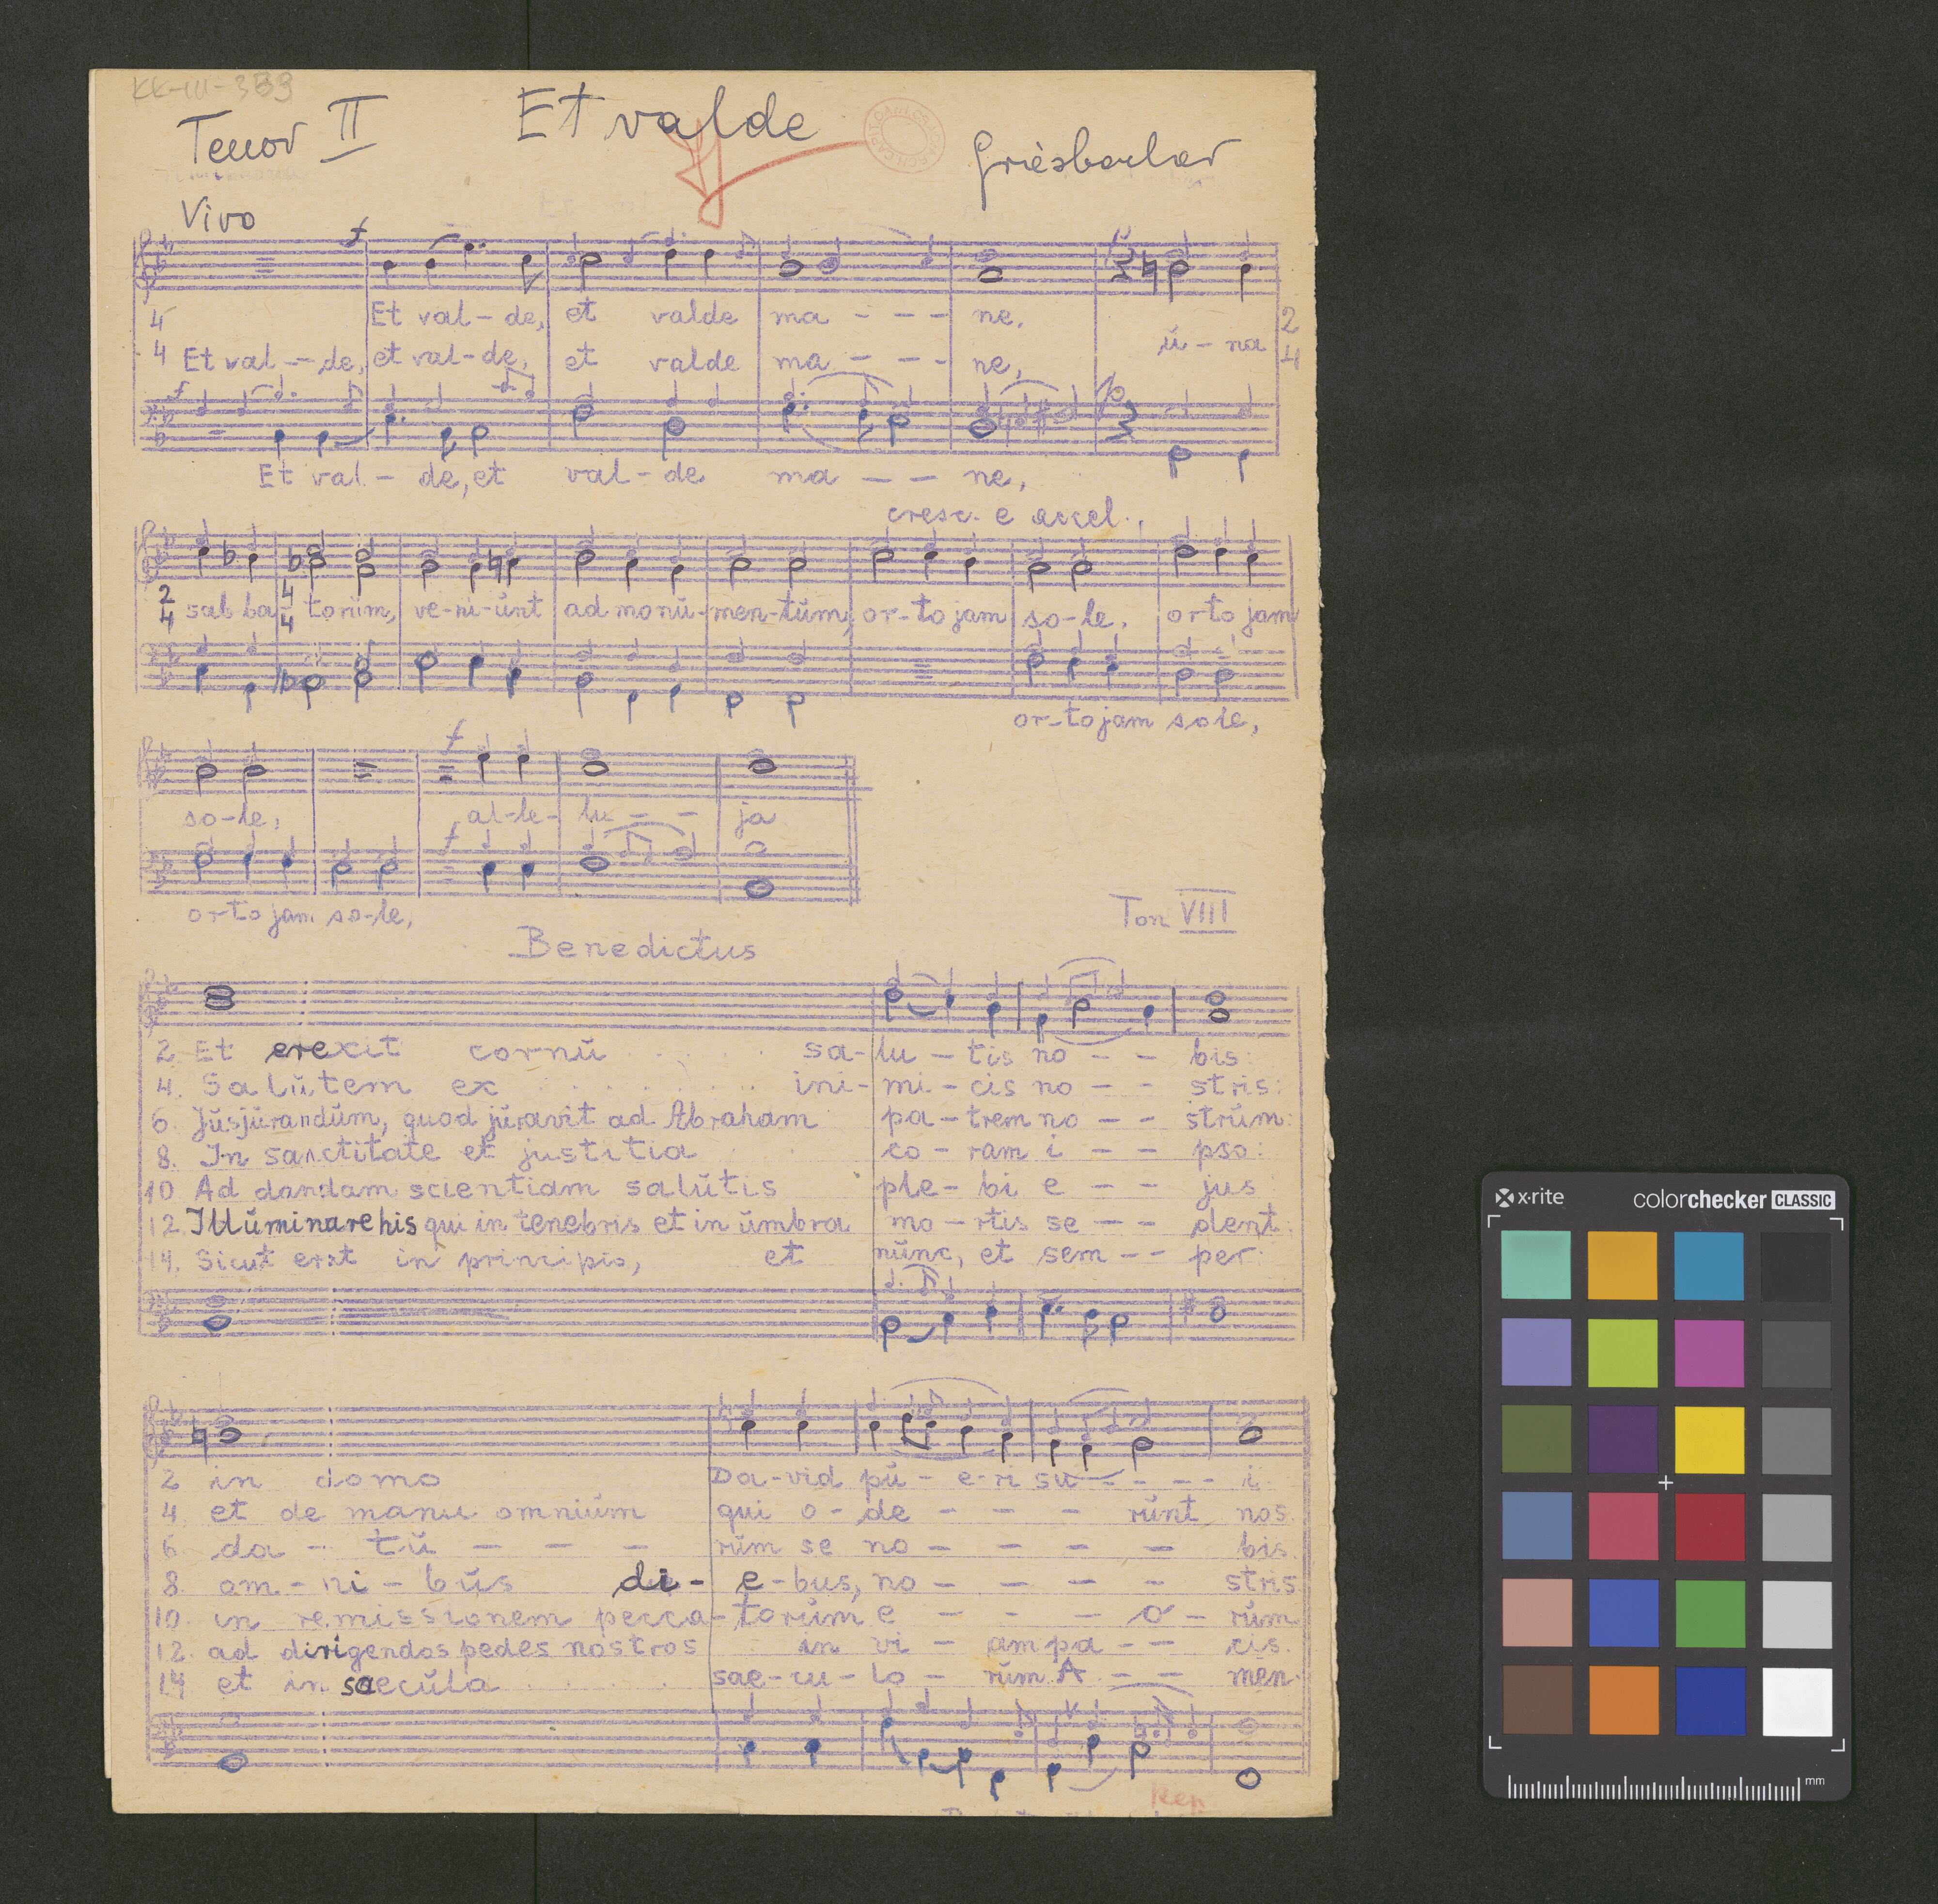 KK-III-339
Tenor II
Et valde
Griesbacher
Vivo
f
Et val-de, et valde ma - - - ne,
4 2
4 Et val--de, et val-de, et valde ma - - - ne, ü-na 4
f p
Et val- de, et val-de ma - - ne,
cresc. e accel.
2 4
4 sab ba 4 torüm, ve-ni-ünt ad monü-men-tüm, or-to jam so-le, orto jam
or-to jam sole,
f
so-le, al-le- lu - - ja
f
orto jam so-le,
Ton VIII
Benedictus
2. Et erexit cornŭ . . . . . sa-lu-tis no - - bis:
4. Salŭtem ex . . . . . . . ini-mi-cis no - - stris:
6. Jŭsjŭrandŭm, quod jŭravit ad Abraham pa-trem no - - strŭm:
8. In sanctitate et justitia co-ram i - - pso:
10 Ad dandam scientiam salŭtis ple-bi e - - jus
12. Illŭminare his qui in tenebris et in ŭmbra mo-rtis se - - dent:
14. Sicut erat in principio, et nŭnc, et sem - - per:
2 in domo Da-vid pŭ-e-ri su - - - - i.
4. et de manu omniŭm qui o-de - - - rŭnt nos.
6 da - tŭ - - - rŭm se no - - - - bis.
8. om-ni-bŭs di-e-bus, no - - - - stris.
10. in remissionem pecca-torŭm e - - - o - rŭm
12. ad dirigendos pedes nostros in vi - am pa - - cis.
14 et in saecŭla . . . . . sae-cu-lo - rŭm. A - - men.
Rep
x-rite colorchecker CLASSIC
mm